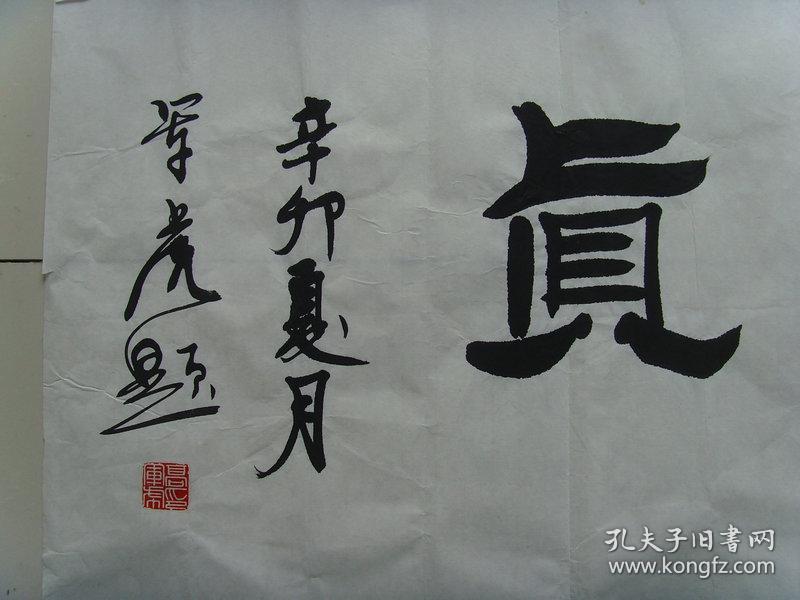 真
辛卯夏月
军虎题
高军虎印
孔夫子旧書网
www.kongfz.com